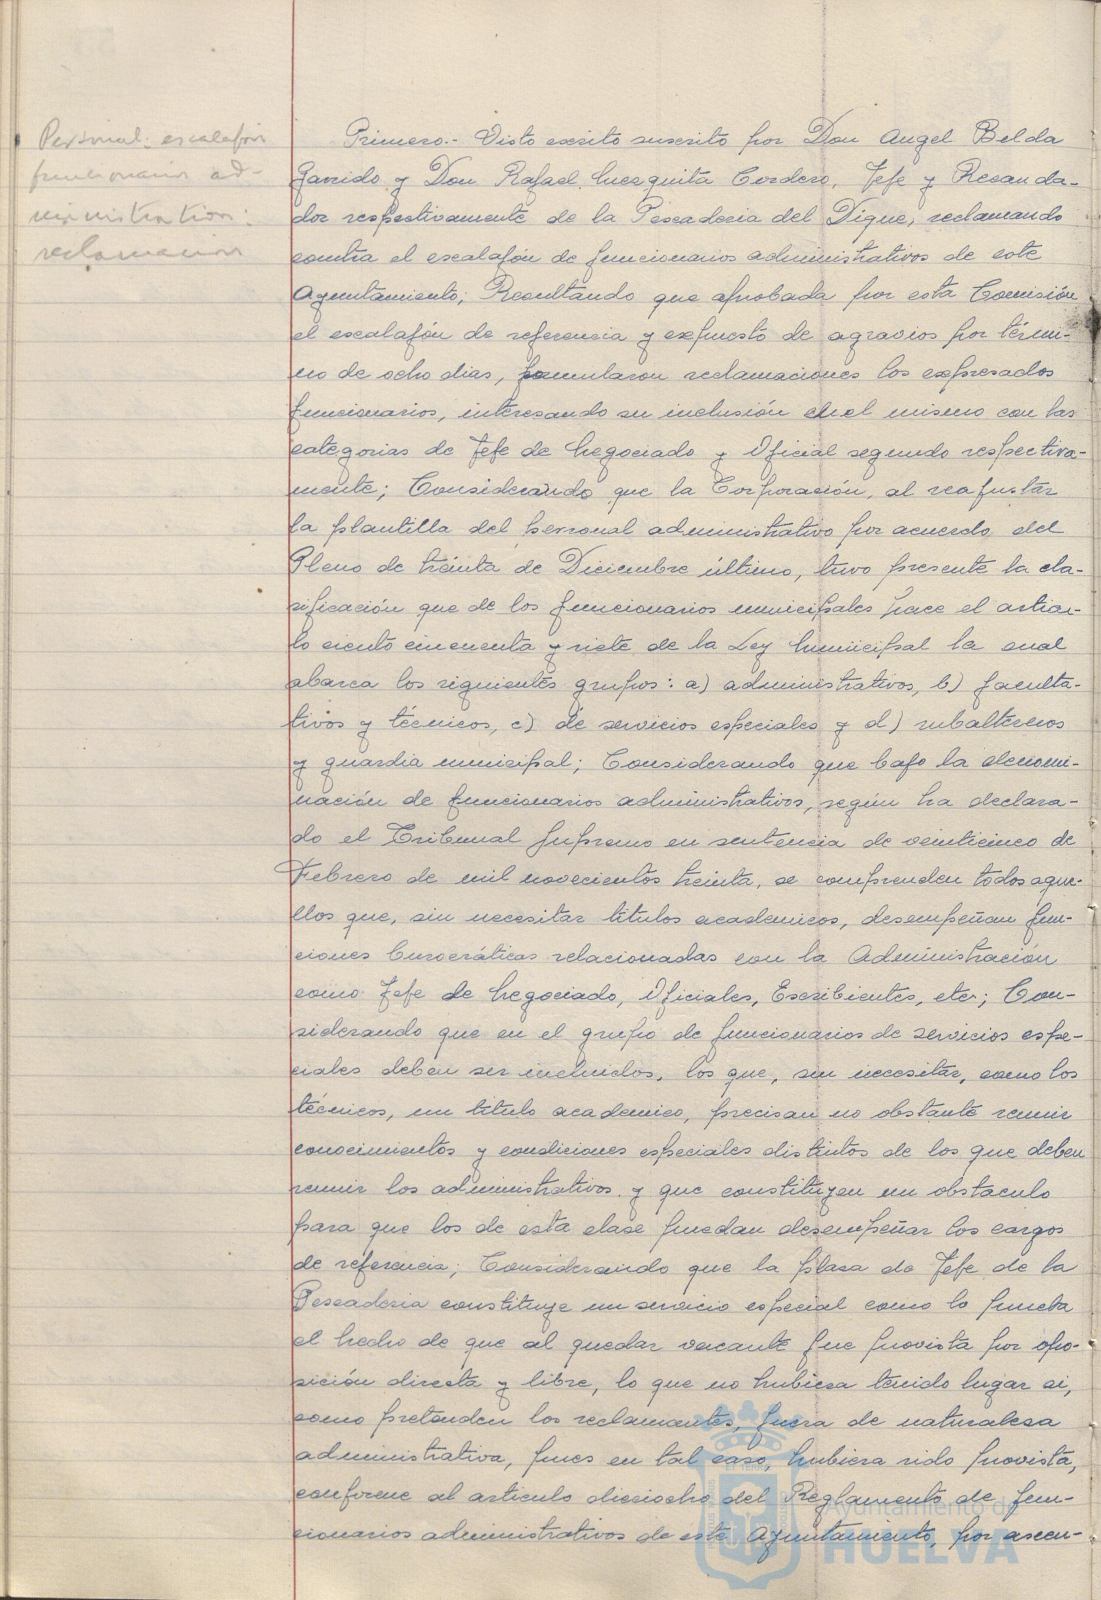 Personal: escalafón
funcionarios ad-
ministration:
reclamación
Primero.- Visto escrito suscrito por Don Angel Belda
Garrido y Don Rafael Mezquita Cordero, Jefe y Recauda-
dor respectivamente de la Pescaderia del Dique, reclamando
contra el escalafón de funcionarios administrativos de este
Ayuntamiento; Resultando que aprobada por esta Comisión
el escalafón de referencia y expuesto de agravios por térmi-
no de ocho dias, formularon reclamaciones los expresados
funcionarios, interesando su inclusión en el mismo con las
categorias de Jefe de Negociado y Oficial segundo respectiva-
mente; Considerando que la Corporación, al reajustar
la plantilla del personal administrativo por acuerdo del
Pleno de treinta de Diciembre último, tuvo presente la cla-
sificación que de los funcionarios municipales hace el articu-
lo ciento cincuenta y siete de la Ley Municipal la cual
abarca los siguientes grupos: a) administrativos, b) faculta-
tivos y técnicos, c) de servicios especiales y d) subalternos
y guardia municipal; Considerando que bajo la denomi-
nación de funcionarios administrativos, según ha declara-
do el Tribunal Supremo en sentencia de veinticinco de
Febrero de mil novecientos treinta, se comprenden todos aque-
llos que, sin necesitar titulos academicos, desempeñan fun-
ciones burocráticas relacionadas con la Administración
como Jefe de Negociado, Oficiales, Escribientes, etc; Con-
siderando que en el grupo de funcionarios de servicios espe-
ciales deben ser incluidos, los que, sin necesitar, como los
técnicos, un titulo academico, precisan no obstante reunir
conocimientos y condiciones especiales distintos de los que deben
reunir los administrativos y que constituyen un obstaculo
para que los de esta clase puedan desempeñar los cargos
de referencia; Considerando que la plaza de Jefe de la
Pescaderia constituye un servicio especial como lo prueba
el hecho de que al quedar vacante fue provista por opo-
sición directa y libre, lo que no hubiera tenido lugar si,
como pretenden los reclamantes, fuera de naturaleza
administrativa, pues en tal caso, hubiera sido provista,
conforme al articulo dieciocho del Reglamento de fun-
cionarios administrativos de este Ayuntamiento, por ascen-
Ayuntamiento de
HUELVA